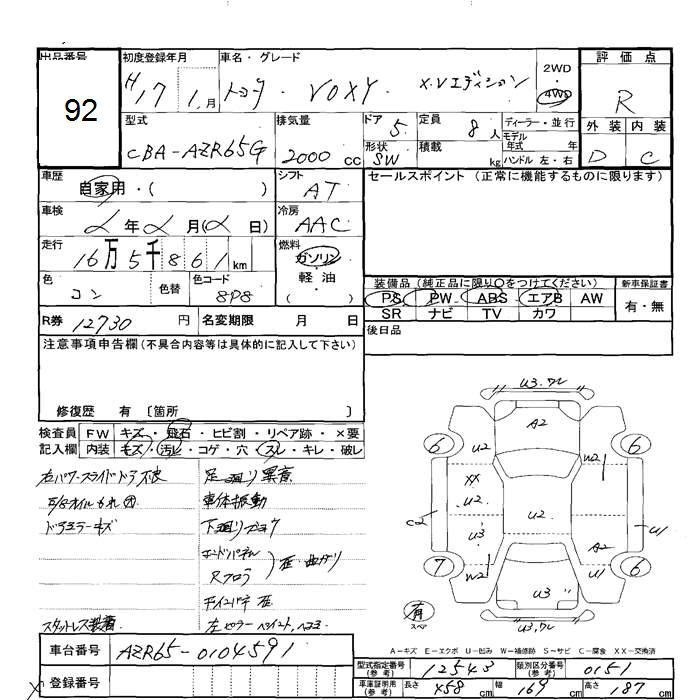 出品番号
92
初度登録年月
H17 1.月
車名・グレード
トヨタ ・ VOXY X.Vエディション
2WD
4WD
評価点
R
型式
CBA-AZR65G
排気量
2000 cc
ドア 5
定員 8人
ディーラー・並行
モデル年式 年
形状 SW
積載 kg
ハンドル 左・右
外装 内装
D C
車歴
自家用・( )
シフト
AT
セールスポイント (正常に機能するものに限ります)
車検
年 月( 日)
冷房
AAC
走行
16万5千861km
燃料
ガソリン
軽・油
( )
色
コン
色替
色コード
8P8
装備品(純正品に限り〇をつけてください)
新車保証書
PS PW ABS エアB AW
有・無
SR ナビ TV カワ
R券 12730円
名変期限 月 日
後日品
注意事項申告欄(不具合内容等は具体的に記入して下さい)
修復歴 有 〔箇所 〕
検査員 FW キズ・飛石・ヒビ割・リペア跡・×要
記入欄 内装 キズ・汚レ・コゲ・穴・スレ・キレ・破レ
右パワースライドドア不良
足廻り異音
車体振動
ドアミラーキズ
エンドパネル
Rフロア
歪・曲がり
スタットレス装着
U3.ワレ
A2
U2
W2
XX
U2
U2
U3
C2
U1
A2
W2
U1
U3
U3,ワレ
6
6
7
6
有
スペア
A-キズ E-エクボ U-凹み W-補修跡 S-サビ C-腐食 XX-交換済
車台番号
AZR65-0104591
登録番号
型式指定番号(参考) 12543
類別区分番号(参考) 0151
車庫証明用(参考) 長さ 458cm 幅 169cm 高さ 187cm